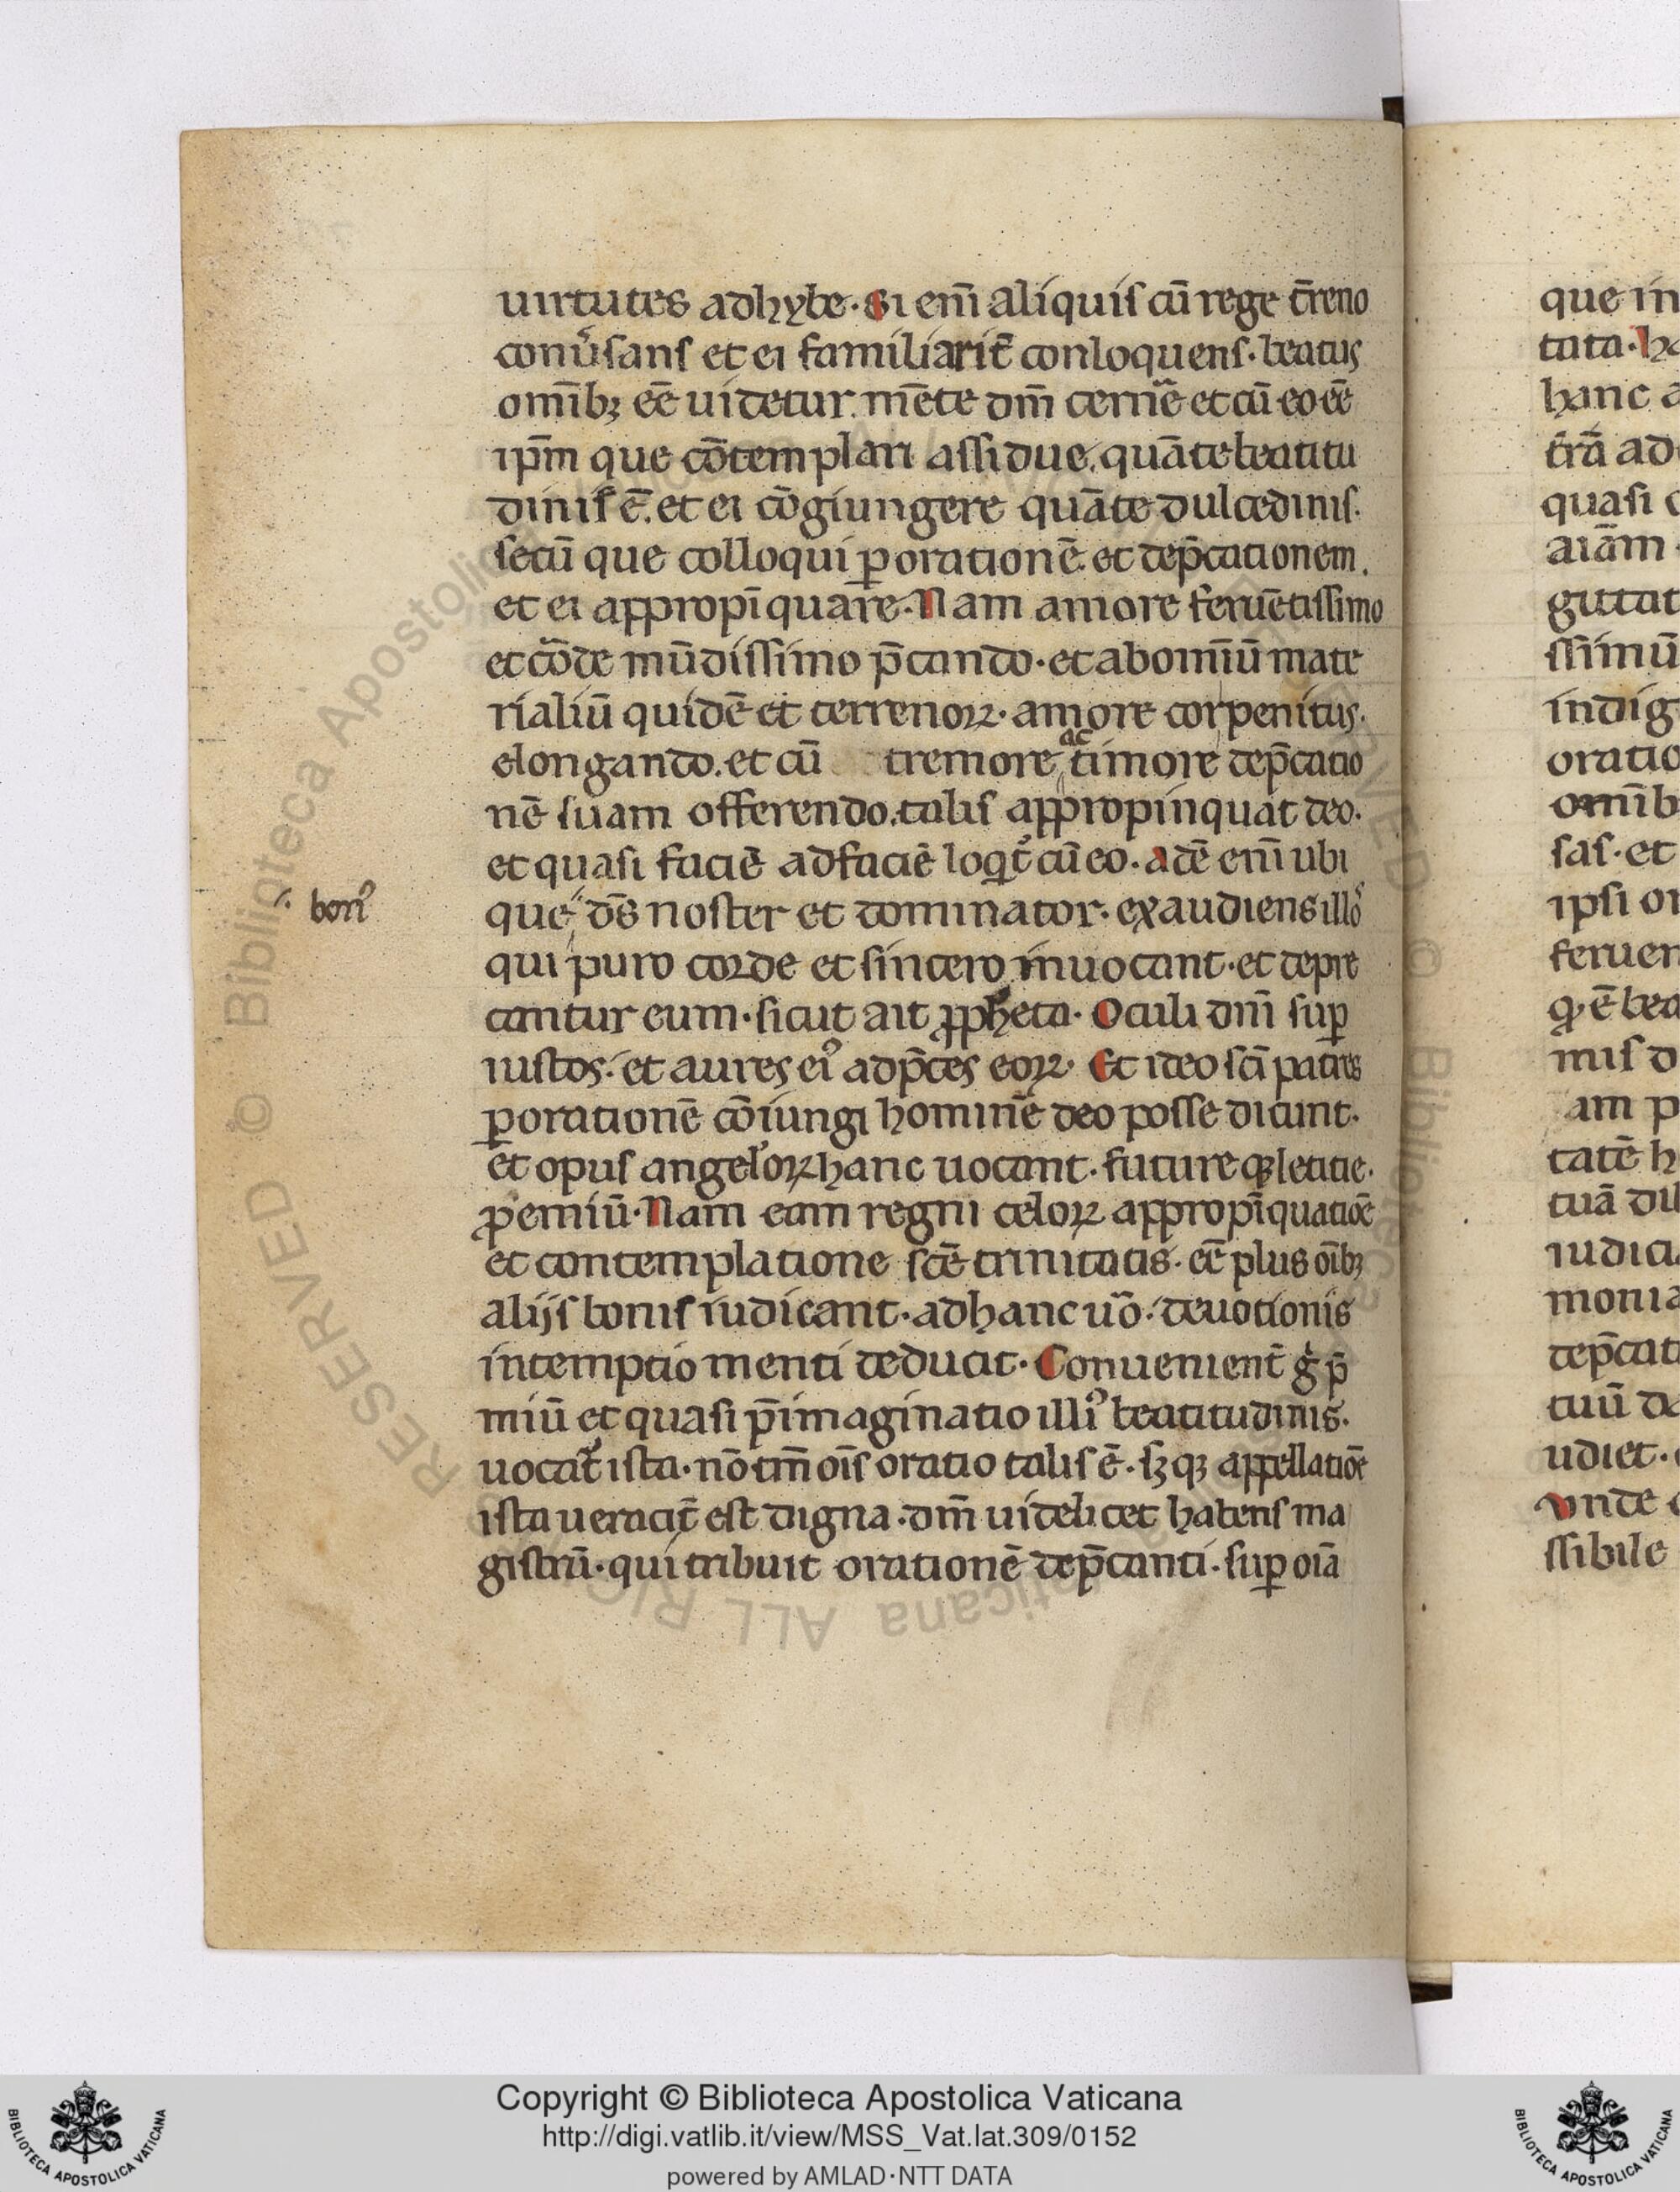 uirtutes adhybe. Si em̄ aliquis cū rege t̄reno
conu̾sans et ei familiarit̾ conloquens. beatus
omībꝫ eē uidetur. mēte dm̄ cern̾e et cū eo eē
ip̄m que cōtemplari assidue. quāte beatitu
dinis ē. et ei cōgiungere quāte dulcedinis.
secū que colloqui ꝑ orationē. et dep̄cationem.
et ei appropīquare. Nam amore feruētissimo
et cōde mūdissimo p̄cando. et ab omīū mate
rialiū quidē et terrenoꝝ. amore cor penitus.
elongando. et cū tremore ac timore dep̄catio
nē suam offerendo. talis appropinquat deo.
et quasi faciē ad faciē loqt̾ cū eo. adē em̄ ubi
que ds̄ noster et dominator. exaudiens illoˢ
ꝰ. bonꝰ
qui puro corde et sincero inuocant. et depre
cantur eum. sicut ait ꝓpheta. Oculi dnī suꝑ
iustos. et aures eiꝰ ad p̄ces eoꝝ. Et ideo scī patres
ꝑ orationē cōiungi hominē deo posse dicunt.
et opus angeloꝝ hanc uocant. future qꝫ letitie.
ꝓemiū. Nam eam regni celoꝝ appropīquatiōe
et contemplatione scē trinitatis. eē plus oībꝫ
alijs bonis iudicant. ad hanc uo̅. deuotionis
intemptio menti deducit. Conuenient̄ g̊ p̄
miū et quasi p̄imaginatio illiꝰ beatitudinis.
uocat̾ ista. nō tm̄ oīs oratio talis ē. sꝫ qꝫ appellatiōe
ista ueracit̄ est digna. dm̄ uidelicet habens ma
gistrū. qui tribuit orationē dep̄canti. suꝑ oīa
que in
tata. ha
hanc a
t̄rā ad
quasi c
aīam
guttat
ssimū
indig
oratio
omīb
sas. et
ipsi or
feruen
q. ē bea
mis d
am p
tatē h
tuā dil
iudicia
monia
dep̄cat
tuū da
udiet.
unde
ssibile
Copyright © Biblioteca Apostolica Vaticana
http://digi.vatlib.it/view/MSS_Vat.lat.309/0152
powered by AMLAD·NTT DATA
BIBLIOTECA APOSTOLICA VATICANA
BIBLIOTECA APOSTOLICA VATICANA